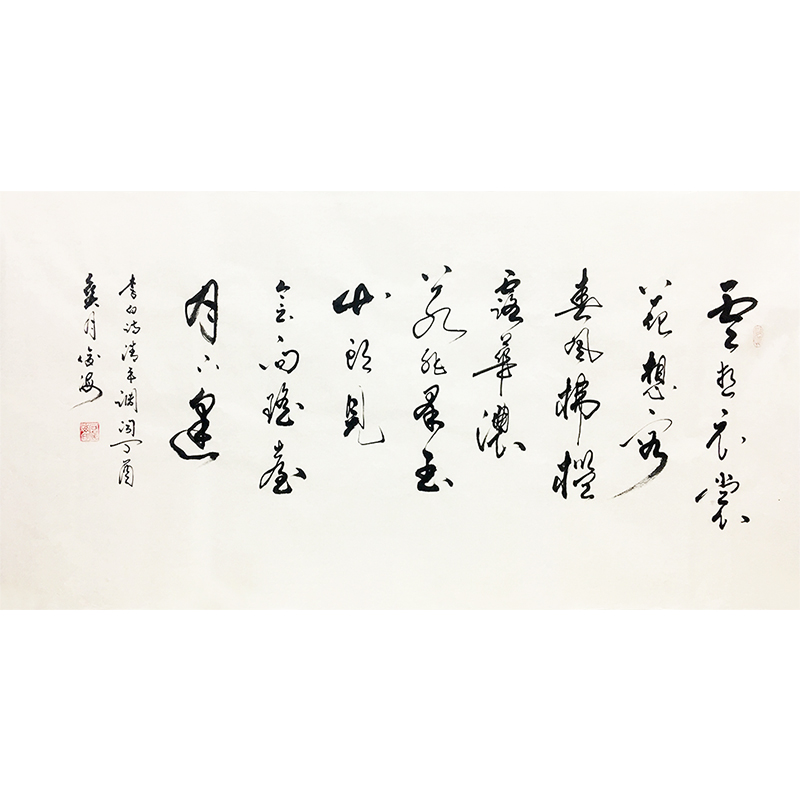 雲想衣裳
花想容
春風拂檻
露華濃
若非羣玉
山頭見
會向瑤臺
月下逢
李白詩清平調閏丁酉
月